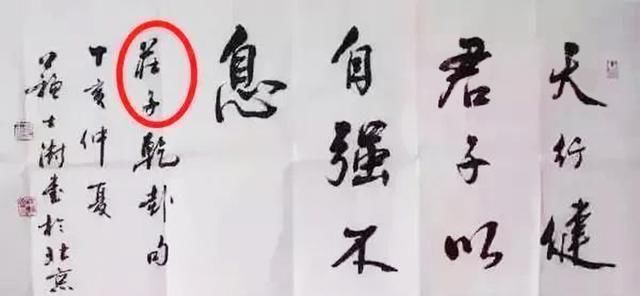 天行健
君子以
自强不
息
莊子乾卦句
丁亥仲夏
士澍書於北京